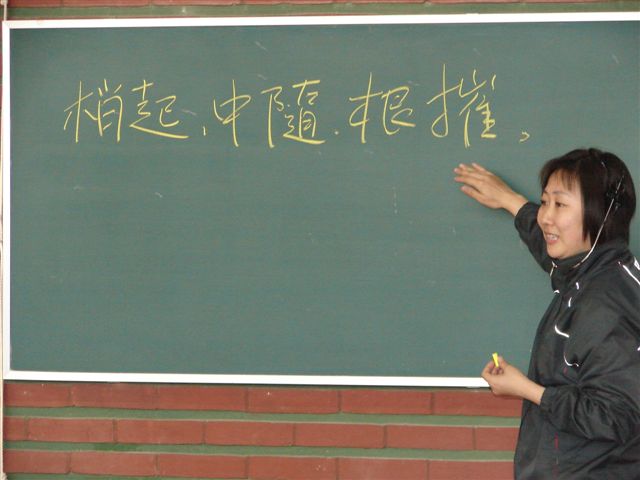 梢起、中隨.根摧。